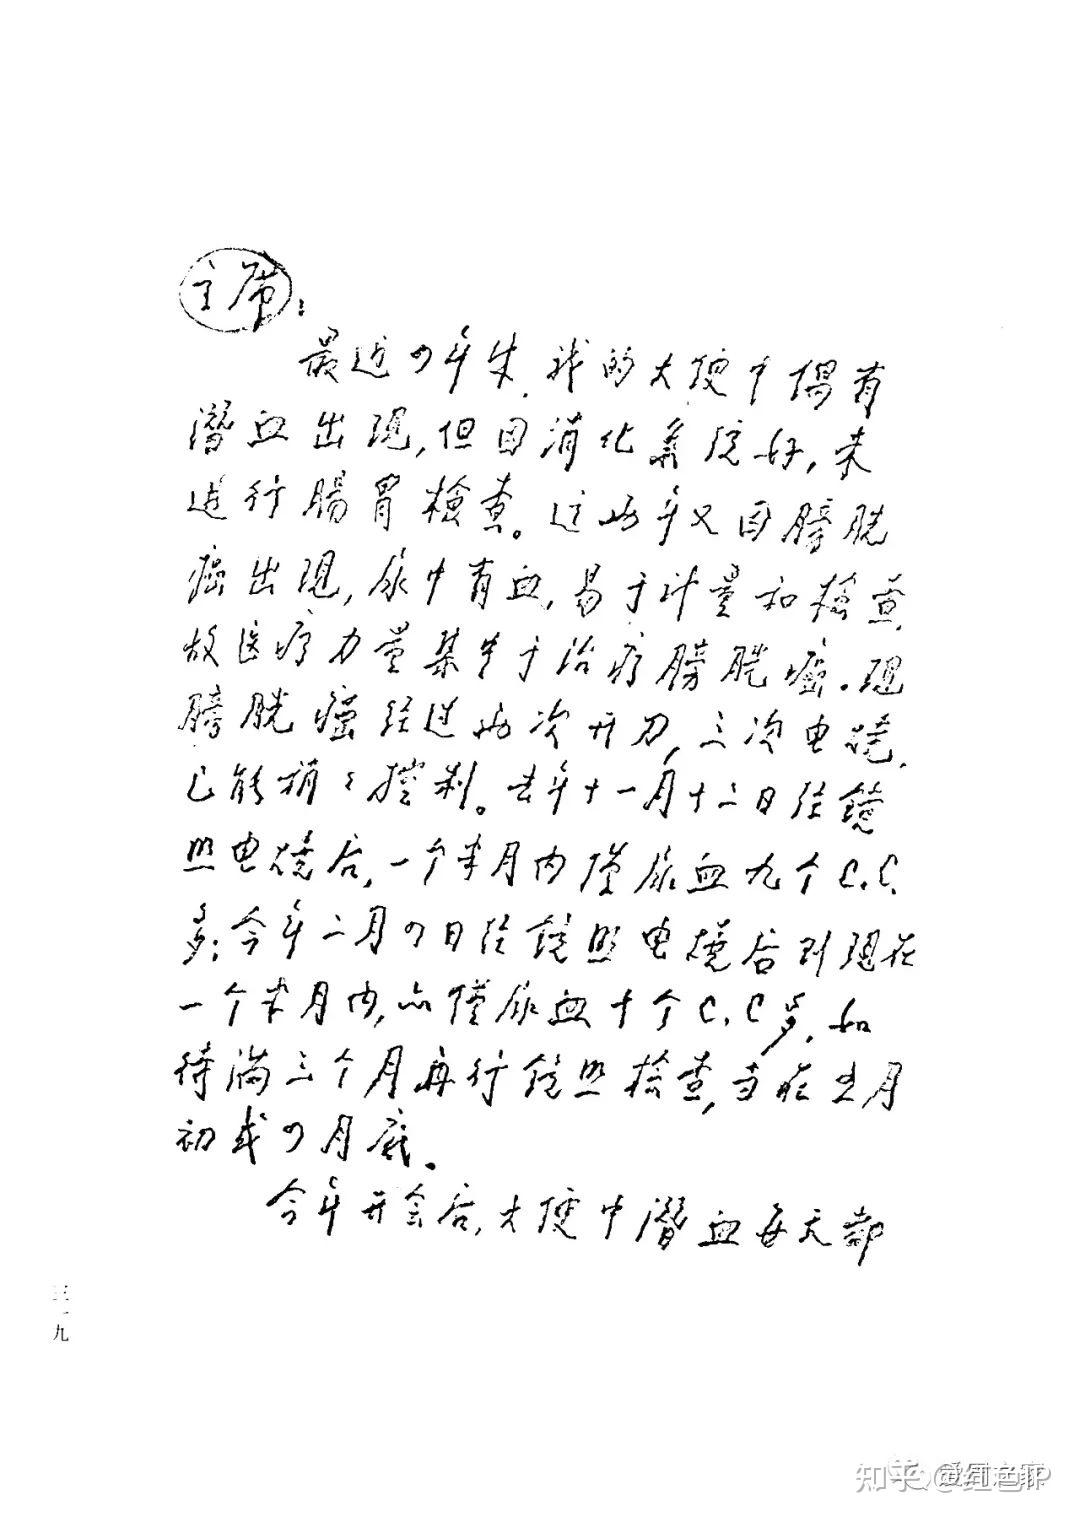 主席：
最近四年来，我的大便中偶有
潜血出现，但因消化系统好，未
进行肠胃检查。这两年又因膀胱
癌出现，尿中有血，易于计量和检查，
故医疗力量集中于治疗膀胱癌。现
膀胱癌经过两次开刀，三次电烧，
已能稍稍控制。去年十一月十二日经镜
照电烧后，一个半月内仅尿血九个C.C.
多；今年二月四日经镜照电烧后到现在
一个半月内，亦仅尿血十个C.C多，如
待满三个月再行镜照检查，当在五月
初或四月底。
今年开会后，大便中潜血每天都
三一九
知乎 @红色IP